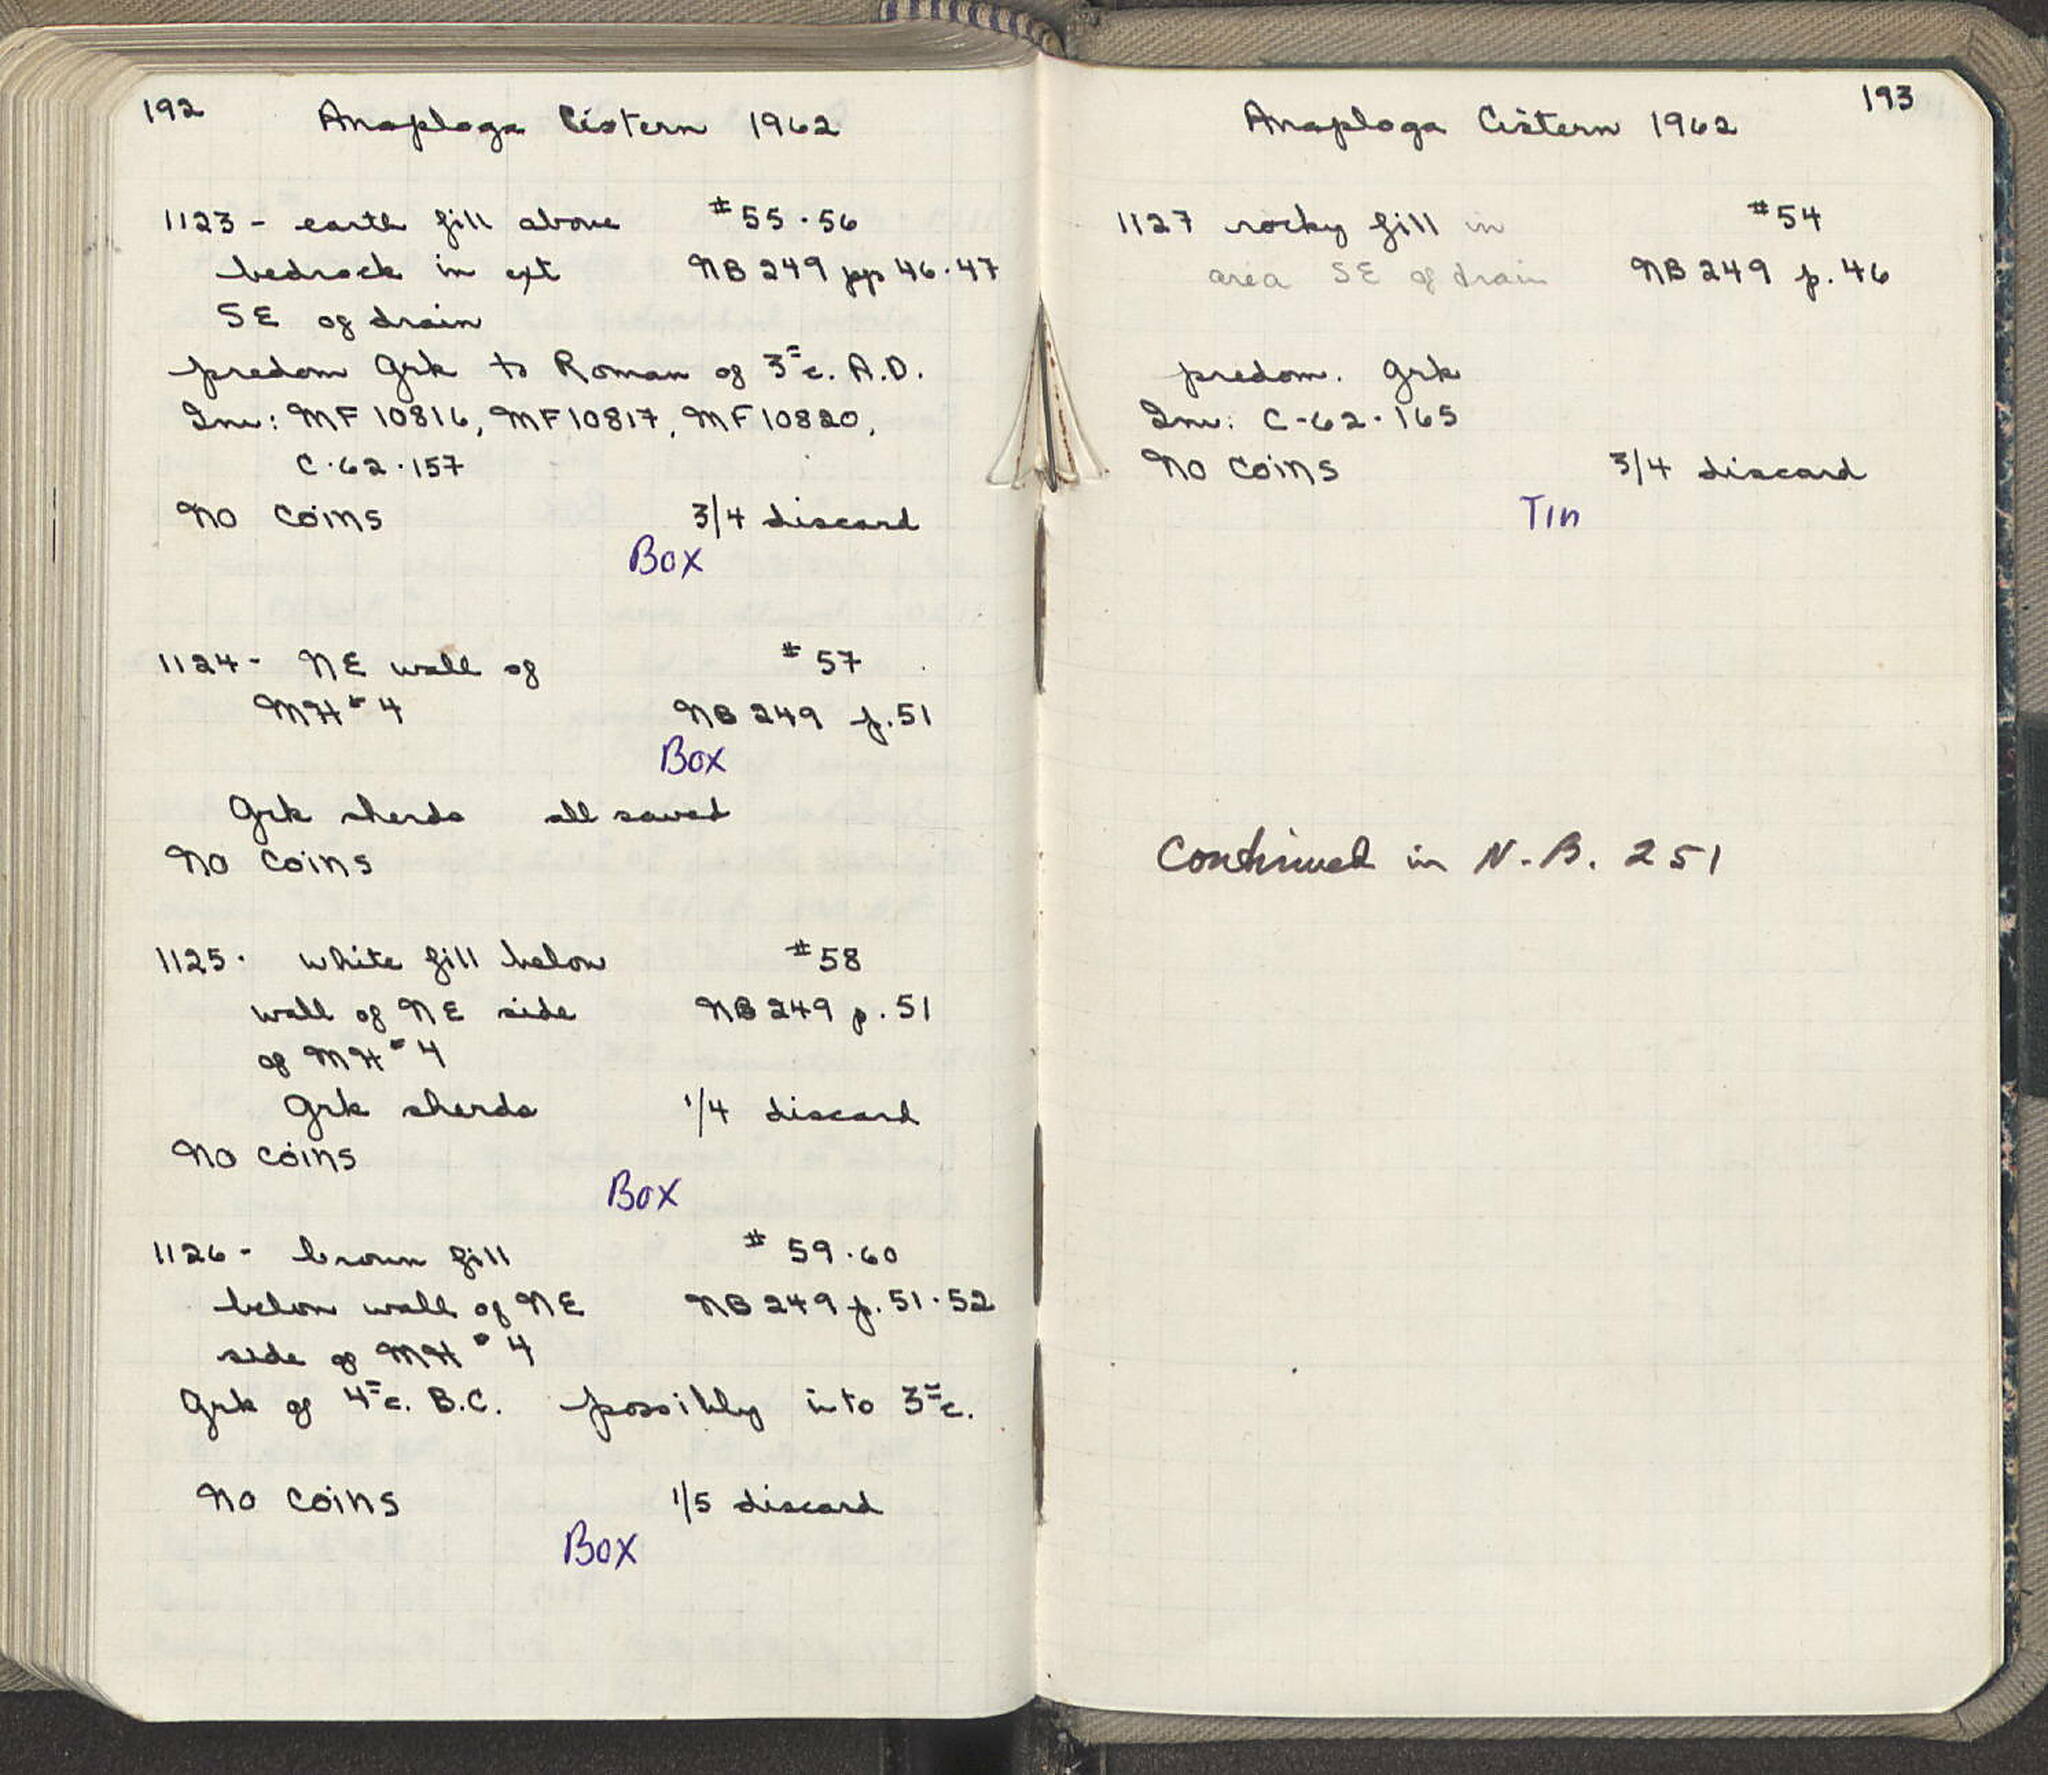 192
Anaploga Cistern 1962
1123 - earth fill above #55-56
bedrock in ext NB 249 pp 46-47
SE of drain
predom Grk to Roman of 3 c. A.D.
Inv: MF 10816, MF 10817, MF 10820,
C-62-157
No coins 3/4 discard
Box
1124 - NE wall of #57
MH #4 NB 249 p. 51
Box
Grk sherds all saved
No coins
1125 - white fill below #58
wall of NE side NB 249 p. 51
of MH #4
Grk sherds 1/4 discard
No coins
Box
1126 - brown fill #59-60
below wall of NE NB 249 p. 51-52
side of MH #4
Grk of 4 c. B.C. possibly into 3 c.
No coins 1/5 discard
Box
193
Anaploga Cistern 1962
1127 rocky fill in #54
area SE of drain NB 249 p. 46
predom. Grk
Inv: C-62-165
No coins 3/4 discard
Tin
Continued in N.B. 251